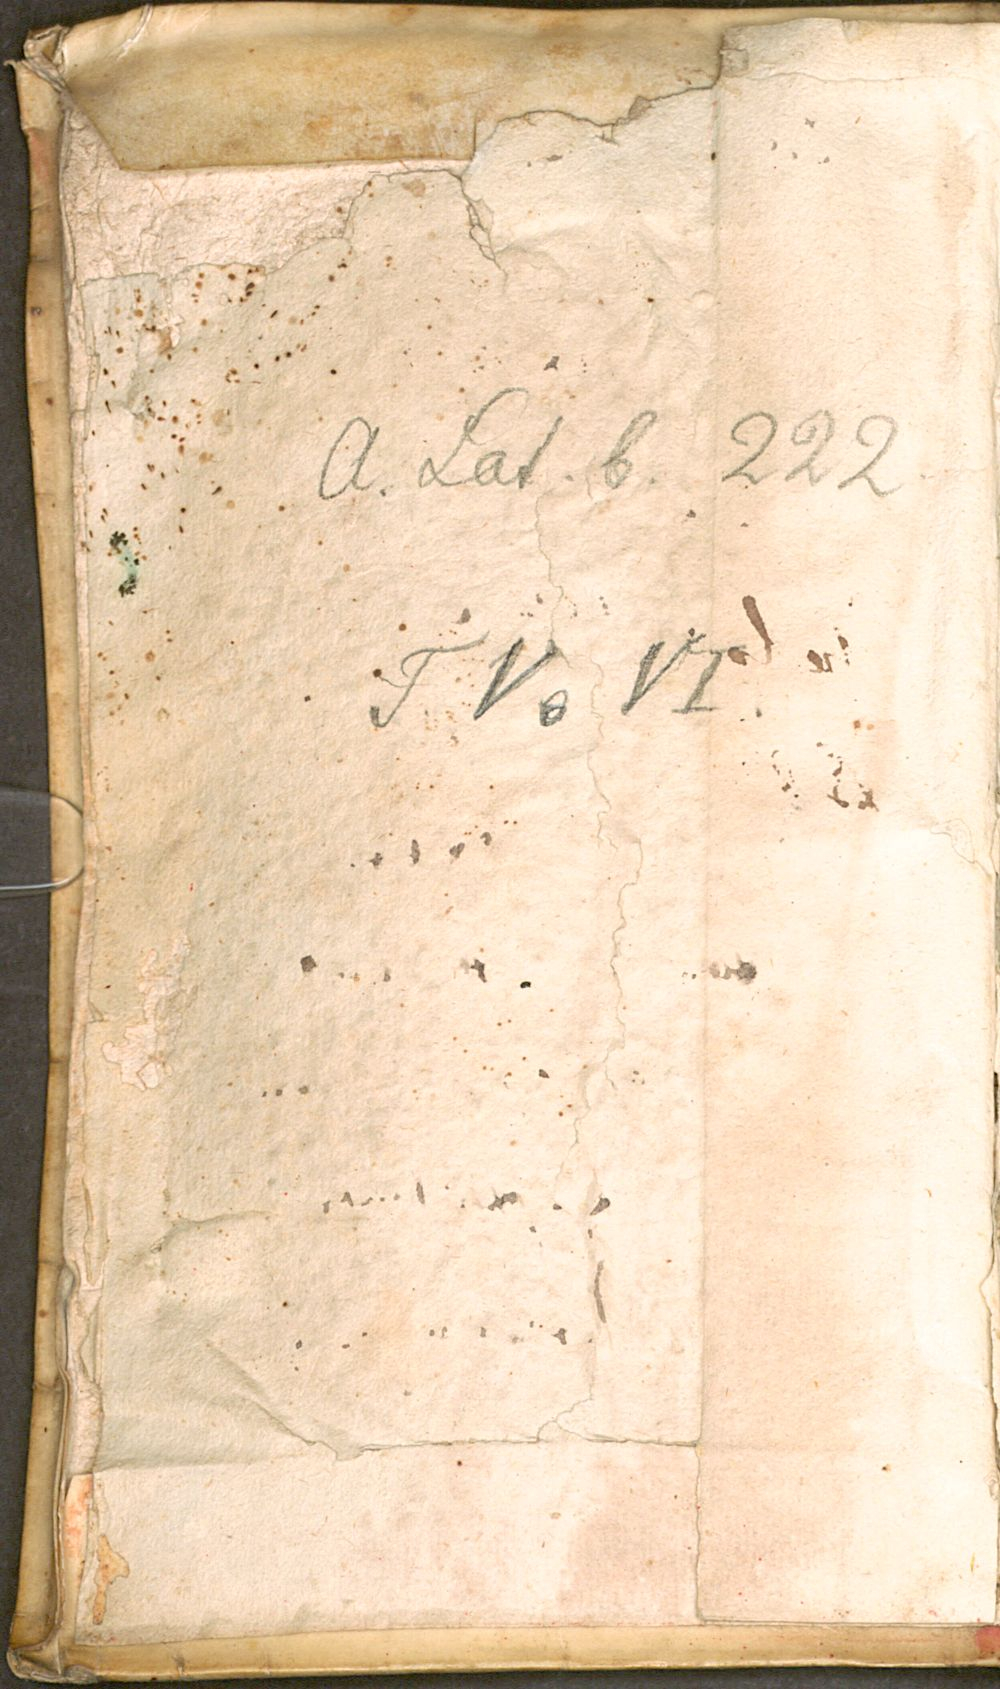 A. Lat. b. 222.
T V & VI.